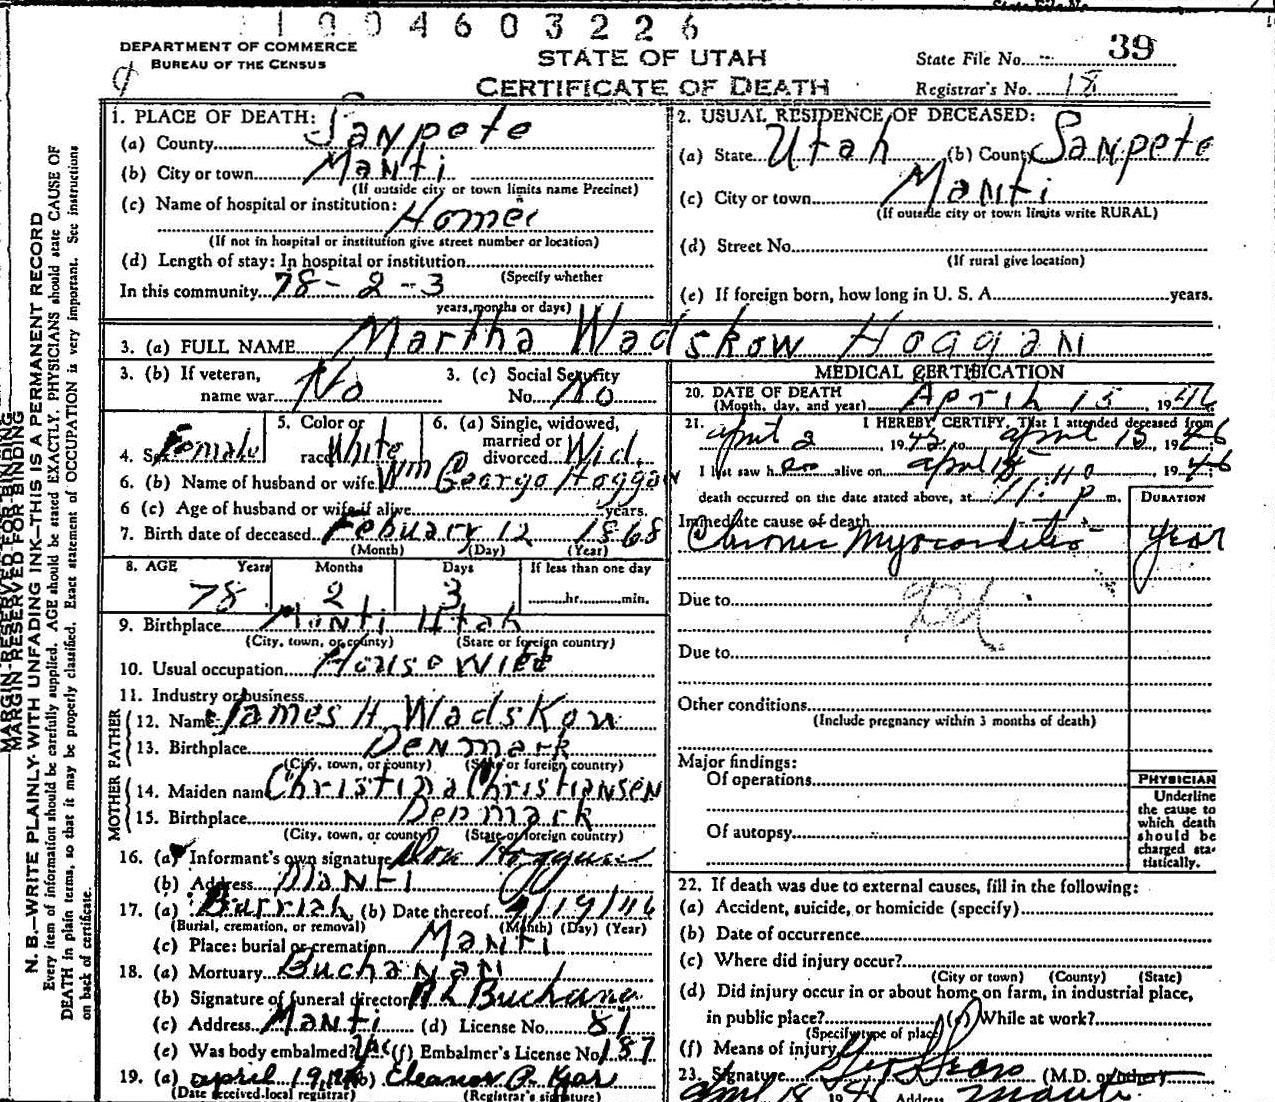 1004603226
DEPARTMENT OF COMMERCE
BUREAU OF THE CENSUS
STATE OF UTAH
CERTIFICATE OF DEATH
State File No. 39
Registrar's No. 18
MARGIN RESERVED FOR BINDING
MARGIN RESERVED FOR BINDING
N. B.—WRITE PLAINLY WITH UNFADING INK—THIS IS A PERMANENT RECORD
Every item of information should be carefully supplied. AGE should be stated EXACTLY. PHYSICIANS should state CAUSE OF
DEATH in plain terms, so that it may be properly classified. Exact statement of OCCUPATION is very important. See instructions
on back of certificate.
1. PLACE OF DEATH:
(a) County Sanpete
(b) City or town Manti
(If outside city or town limits name Precinct)
(c) Name of hospital or institution:
Home
(If not in hospital or institution give street number or location)
(d) Length of stay: In hospital or institution
(Specify whether
In this community 78-2-3
years, months or days)
2. USUAL RESIDENCE OF DECEASED:
(a) State Utah (b) County Sanpete
(c) City or town Manti
(If outside city or town limits write RURAL)
(d) Street No.
(If rural give location)
(e) If foreign born, how long in U. S. A. years.
3. (a) FULL NAME Martha Wadskow Hoggan
3. (b) If veteran,
name war No
3. (c) Social Security
No. No
4. Sex Female
5. Color or
race White
6. (a) Single, widowed,
married or
divorced Wid.
6. (b) Name of husband or wife Wm George Hoggan
6 (c) Age of husband or wife if alive years.
7. Birth date of deceased Febuary 12 1868
(Month) (Day) (Year)
8. AGE Years Months Days If less than one day
78 2 3 hr. min.
9. Birthplace Manti Utah
(City, town, or county) (State or foreign country)
10. Usual occupation House wife
11. Industry or business
FATHER
12. Name James H Wadskow
13. Birthplace Denmark
(City, town, or county) (State or foreign country)
MOTHER
14. Maiden name Christina Christiansen
15. Birthplace Denmark
(City, town, or county) (State or foreign country)
16. (a) Informant's own signature Don Hoggan
(b) Address Manti
17. (a) Burrial (b) Date thereof 4/19/46
(Burial, cremation, or removal) (Month) (Day) (Year)
(c) Place: burial or cremation Manti
18. (a) Mortuary Buchanan
(b) Signature of funeral director
(c) Address Manti (d) License No. 81
(e) Was body embalmed? yes (f) Embalmer's License No. 187
19. (a) April 19, 1946 (b) Eleanor P.
(Date received local registrar) (Registrar's signature)
MEDICAL CERTIFICATION
20. DATE OF DEATH
(Month, day, and year) April 15 1946
21. I HEREBY CERTIFY, That I attended deceased from
April 2 1945, to April 15, 1946
I last saw her alive on April 1946
death occurred on the date stated above, at p m.
DURATION
Immediate cause of death
Chronic Myocarditis year
Due to
Due to
Other conditions
(Include pregnancy within 3 months of death)
Major findings:
Of operations
Of autopsy
PHYSICIAN
Underline
the cause to
which death
should be
charged sta-
tistically.
22. If death was due to external causes, fill in the following:
(a) Accident, suicide, or homicide (specify)
(b) Date of occurrence
(c) Where did injury occur?
(City or town) (County) (State)
(d) Did injury occur in or about home, on farm, in industrial place,
in public place? (e) While at work?
(Specify type of place)
(f) Means of injury
23. Signature (M.D. or other)
April 18 1946 Address Manti